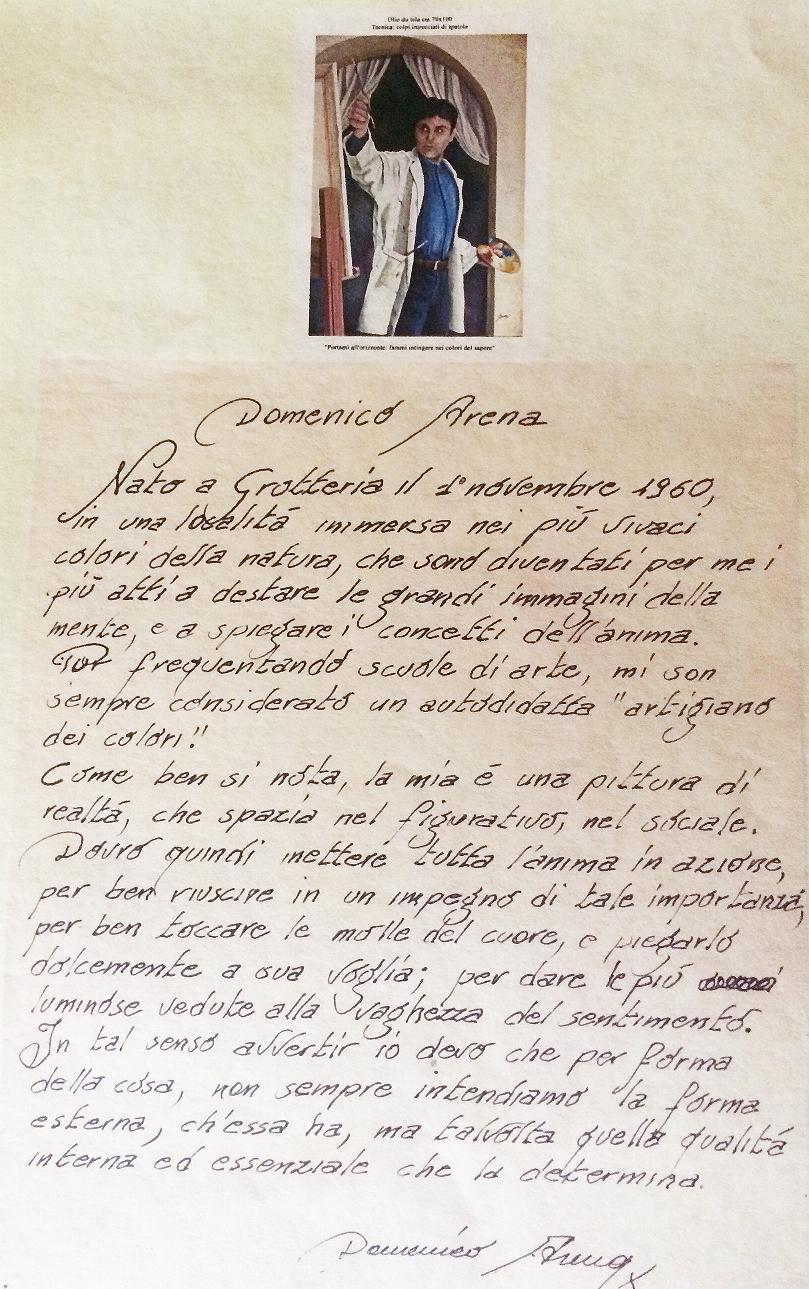 Olio du tela cm 70x100
Tecnica: colpi intrecciati di spatola
"Portami all'orizzonte: fammi intingere nei colori del sapere"
Domenico Arena
Nato a Grotteria il 1° novembre 1960,
in una località immersa nei più vivaci
colori della natura, che sono diventati per me i
più atti a destare le grandi immagini della
mente, e a spiegare i concetti dell'anima.
Pur frequentando scuole di arte, mi son
sempre considerato un autodidatta "artigiano
dei colori!"
Come ben si nota, la mia è una pittura di
realtà, che spazia nel figurativo, nel sociale.
Dovrò quindi mettere tutta l'anima in azione,
per ben riuscire in un impegno di tale importanza,
per ben toccare le molle del cuore, e piegarlo
dolcemente a sua voglia; per dare le più
luminose vedute alla vaghezza del sentimento.
In tal senso avvertir io devo che per forma
della cosa, non sempre intendiamo la forma
esterna, ch'essa ha, ma talvolta quella qualità
interna ed essenziale che la determina.
Domenico Arena